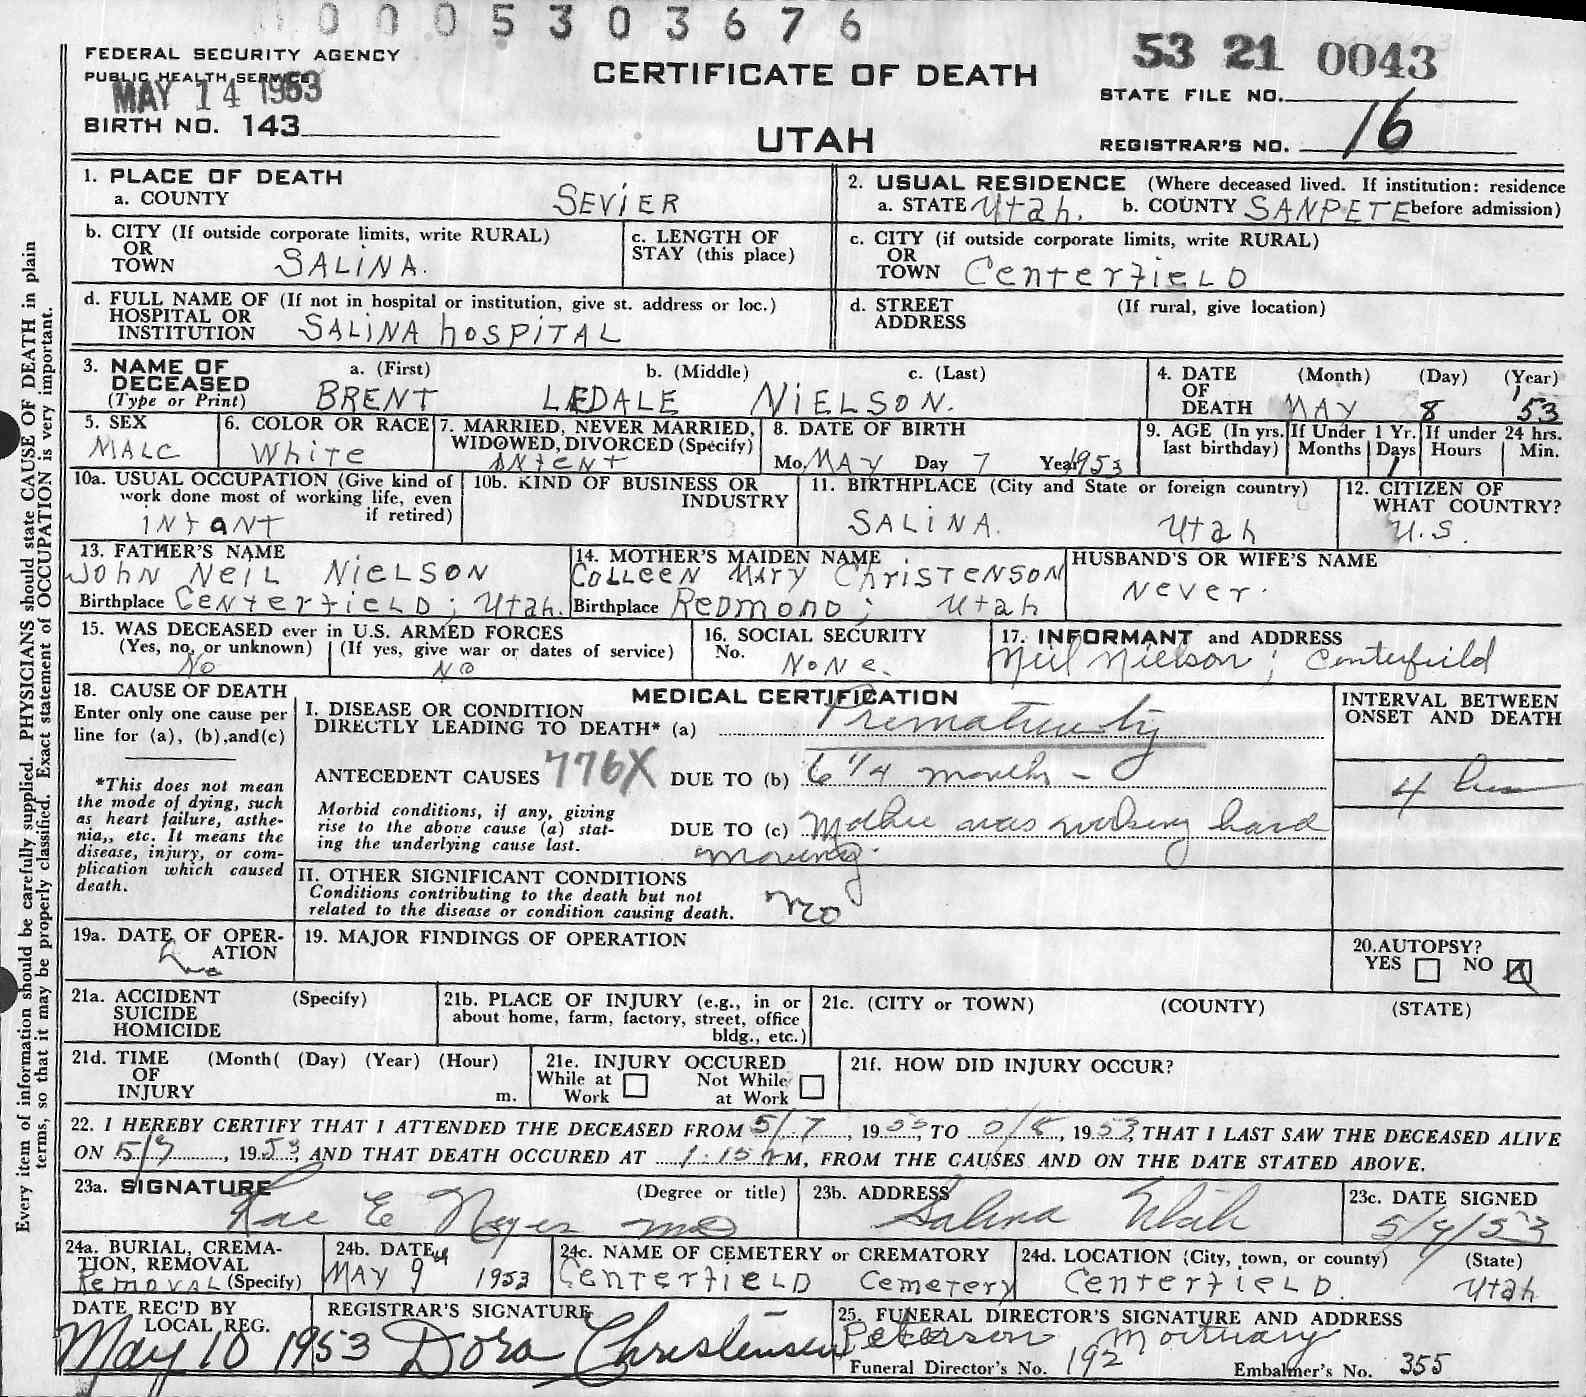 0005303676
FEDERAL SECURITY AGENCY
PUBLIC HEALTH SERVICE
MAY 14 1953
BIRTH NO. 143
CERTIFICATE OF DEATH
UTAH
53 21 0043
STATE FILE NO.
REGISTRAR'S NO. 16
Every item of information should be carefully supplied. PHYSICIANS should state CAUSE OF DEATH in plain
terms, so that it may be properly classified. Exact statement of OCCUPATION is very important.
1. PLACE OF DEATH
a. COUNTY SEVIER
2. USUAL RESIDENCE (Where deceased lived. If institution: residence
a. STATE Utah. b. COUNTY SANPETE before admission)
b. CITY (If outside corporate limits, write RURAL)
OR
TOWN SALINA.
c. LENGTH OF
STAY (this place)
c. CITY (if outside corporate limits, write RURAL)
OR
TOWN CenterfielD
d. FULL NAME OF (If not in hospital or institution, give st. address or loc.)
HOSPITAL OR
INSTITUTION SALINA hOSPITAL
d. STREET (If rural, give location)
ADDRESS
3. NAME OF a. (First) b. (Middle) c. (Last)
DECEASED
(Type or Print) BRENT LEDALE NIELSON.
4. DATE (Month) (Day) (Year)
OF
DEATH MAY 8 1953
5. SEX
MALE
6. COLOR OR RACE
White
7. MARRIED, NEVER MARRIED,
WIDOWED, DIVORCED (Specify)
INfENT
8. DATE OF BIRTH
Mo. MAY Day 7 Year 1953
9. AGE (In yrs. last birthday)
If Under 1 Yr. Months Days 1
If under 24 hrs. Hours Min.
10a. USUAL OCCUPATION (Give kind of
work done most of working life, even
if retired)
INfaNT
10b. KIND OF BUSINESS OR
INDUSTRY
11. BIRTHPLACE (City and State or foreign country)
SALINA. Utah
12. CITIZEN OF
WHAT COUNTRY?
U.S.
13. FATHER'S NAME
JOhN NEIL NIELSON
Birthplace CENterfielD; Utah.
14. MOTHER'S MAIDEN NAME
COLLEEN MARY ChrisTENSON
Birthplace REDMOND; Utah
HUSBAND'S OR WIFE'S NAME
NeVer.
15. WAS DECEASED ever in U.S. ARMED FORCES
(Yes, no, or unknown) (If yes, give war or dates of service)
No NO
16. SOCIAL SECURITY
No. NoNe.
17. INFORMANT and ADDRESS
Neil Nielson; Centerfield
18. CAUSE OF DEATH
Enter only one cause per
line for (a), (b),and(c)
*This does not mean
the mode of dying, such
as heart failure, asthe-
nia,, etc. It means the
disease, injury, or com-
plication which caused
death.
MEDICAL CERTIFICATION
I. DISEASE OR CONDITION
DIRECTLY LEADING TO DEATH* (a) Prematurity
ANTECEDENT CAUSES 776X DUE TO (b) 6 1/4 months -
Morbid conditions, if any, giving
rise to the above cause (a) stat-
ing the underlying cause last.
DUE TO (c) Mother was working hard
moving.
II. OTHER SIGNIFICANT CONDITIONS
Conditions contributing to the death but not
related to the disease or condition causing death.
no
INTERVAL BETWEEN
ONSET AND DEATH
4 hrs
19a. DATE OF OPER-
ATION
no
19. MAJOR FINDINGS OF OPERATION
20. AUTOPSY?
YES NO
21a. ACCIDENT (Specify)
SUICIDE
HOMICIDE
21b. PLACE OF INJURY (e.g., in or
about home, farm, factory, street, office
bldg., etc.)
21c. (CITY or TOWN) (COUNTY) (STATE)
21d. TIME (Month( (Day) (Year) (Hour)
OF
INJURY m.
21e. INJURY OCCURED
While at Work Not While at Work
21f. HOW DID INJURY OCCUR?
22. I HEREBY CERTIFY THAT I ATTENDED THE DECEASED FROM 5/7, 1953, TO 5/8, 1953, THAT I LAST SAW THE DECEASED ALIVE
ON 5/7, 1953, AND THAT DEATH OCCURED AT 1:15 AM, FROM THE CAUSES AND ON THE DATE STATED ABOVE.
23a. SIGNATURE (Degree or title)
Rae E Noyes MD
23b. ADDRESS
Salina Utah
23c. DATE SIGNED
5/9/53
24a. BURIAL, CREMA-
TION, REMOVAL
REMOVAL (Specify)
24b. DATE
MAY 9 1953
24c. NAME OF CEMETERY or CREMATORY
CENTERfIELD Cemetery
24d. LOCATION (City, town, or county) (State)
CENTERfIELD. Utah
DATE REC'D BY
LOCAL REG.
May 10 1953
REGISTRAR'S SIGNATURE
Dora Christensen
25. FUNERAL DIRECTOR'S SIGNATURE AND ADDRESS
Peterson Mortuary
Funeral Director's No. 192 Embalmer's No. 355